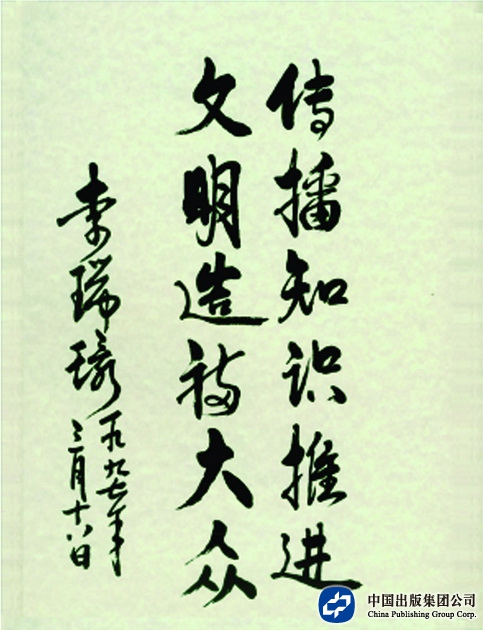 传播知识推进
文明造福大众
李瑞环
一九九七年
三月十八日
中国出版集团公司
China Publishing Group Corp.